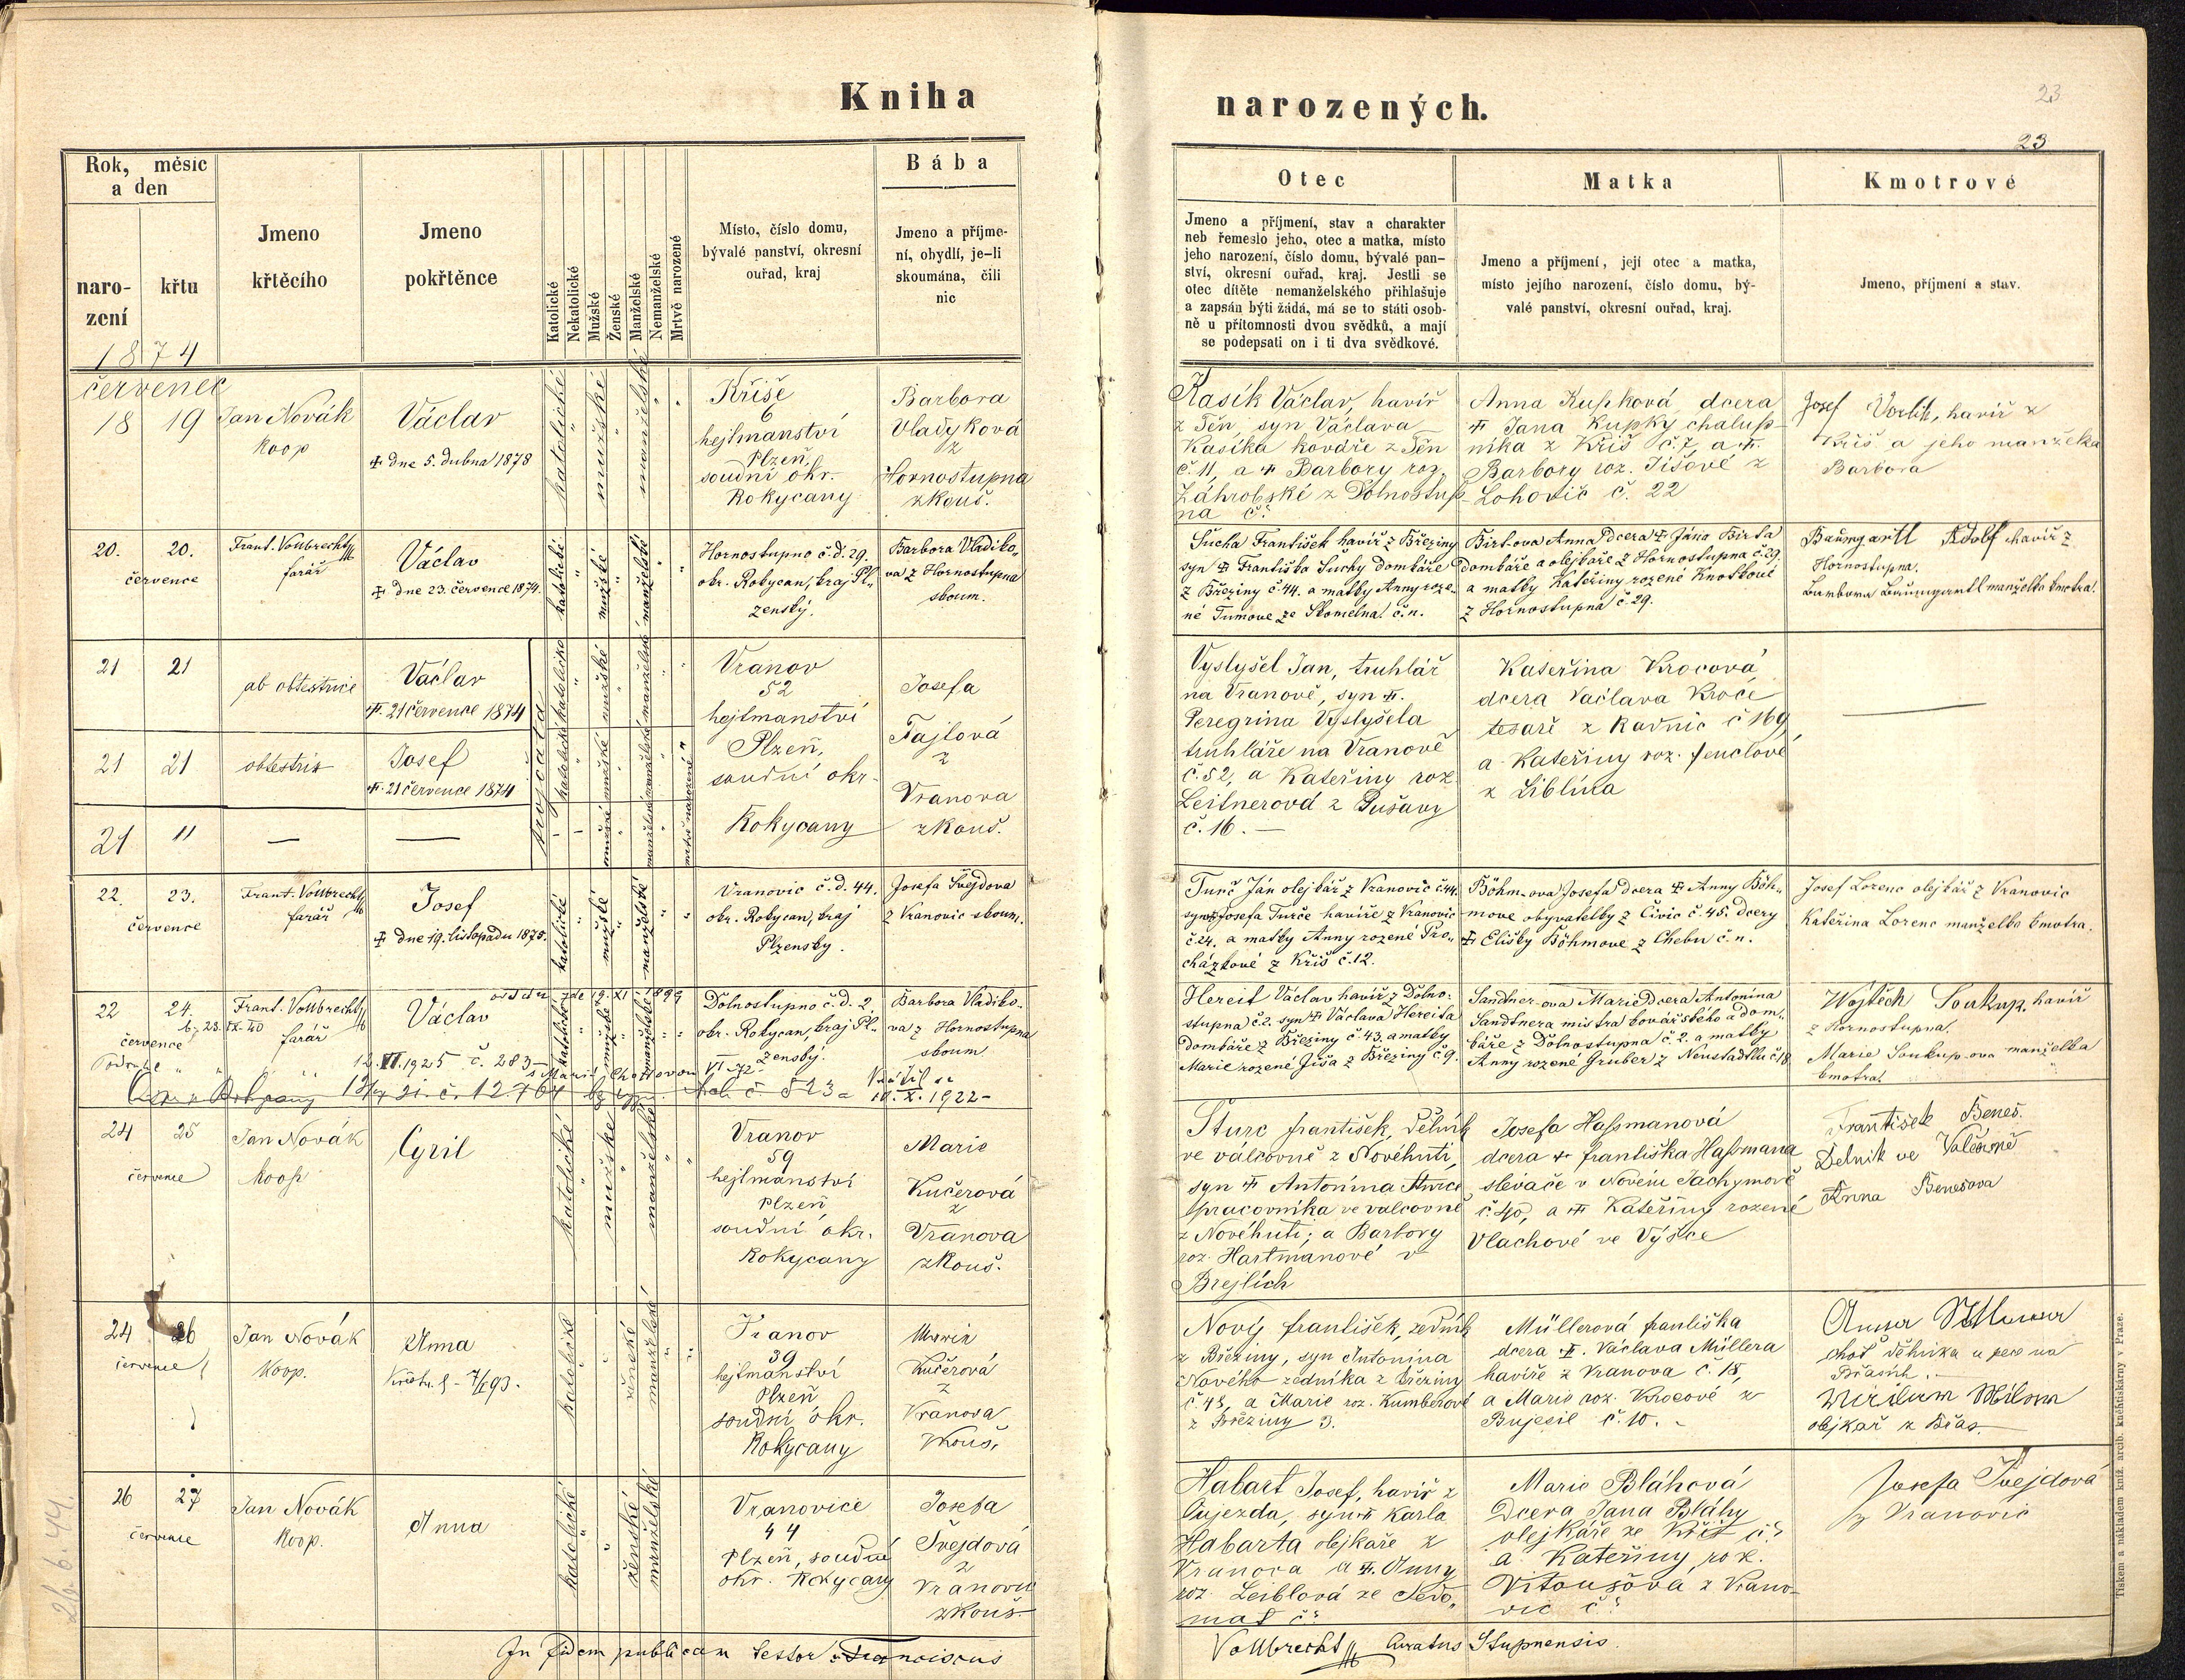 Kniha
narozených.
23
23
Rok, měsíc
a den
naro-
zení
křtu
Jmeno
křtěcího
Jmeno
pokřtěnce
Katolické
Nekatolické
Mužské
Ženské
Manželské
Nemanželské
Mrtvě narozené
Místo, číslo domu,
bývalé panství, okresní
ouřad, kraj
Bába
Jmeno a příjme-
ní, obydlí, je-li
skoumána, čili
nic
Otec
Jmeno a příjmení, stav a charakter
neb řemeslo jeho, otec a matka, místo
jeho narození, číslo domu, bývalé pan-
ství, okresní ouřad, kraj. Jestli se
otec dítěte nemanželského přihlašuje
a zapsán býti žádá, má se to státi osob-
ně u přítomnosti dvou svědků, a mají
se podepsati on i ti dva svědkové.
Matka
Jmeno a příjmení, její otec a matka,
místo jejího narození, číslo domu, bý-
valé panství, okresní ouřad, kraj.
Kmotrové
Jmeno, příjmení a stav.
1874
červenec
18 19
Jan Novák
Koop
Václav
✠ dne 5. dubna 1878
katolické
mužské
manželské
Kříše
6
hejtmanství
Plzeň,
soudní okr.
Rokycany
Barbora
Vladyková
z
Hornostupna
zkouš.
Kasík Václav, havíř
z Těn, syn Václava
Kasíka kováře z Těn
č. 11, a ✠ Barbory roz.
Záhrobské z Dolnostup-
na č.
Anna Kupková, dcera
✠ Jana Kupky chalup-
níka z Kříš č. 7, a ✠.
Barbory roz. Tišové z
Lohovic č. 22
Josef Vorlík, havíř z
Kříš a jeho manželka
Barbora
20. 20.
července
Frant. Vollbrecht
farář
Václav
✠ dne 23. července 1874.
katolické
mužské
manželské
Hornostupno č. d. 29.
okr. Rokycan, kraj Pl-
zenský.
Barbora Vladiko-
va z Hornostupna
skoum.
Sucha František havíř z Březiny
syn ✠ Františka Suchy domkáře
z Březiny č. 44. a matky Anny roze-
né Tumove ze Skomelna č. n.
Birt-ova Anna dcera ✠ Jána Birta
domkáře a olejkáře z Hornostupna č. 29.
a matky Kateřiny rozené Knotkové
z Hornostupna č. 29.
Baumgartl Adolf havíř z
Hornostupna.
Barbora Baumgartl manželka kmotra.
21 21
ab obtestrice
Václav
✠. 21 července 1874
21 21
obtestrix
Josef
✠. 21 července 1874
21 11
trojčata
katolické
mužské
manželské
mrtvě narozené
Vranov
52
hejtmanství
Plzeň,
soudní okr.
Rokycany
Josefa
Fajtová
z
Vranova
zkouš.
Vyslyšel Jan, truhlář
na Vranově, syn ✠.
Peregrina Vyslyšela
truhláře na Vranově
č. 52, a Kateřiny roz
Leitnerové z Pušavy
č. 16.
Kateřina Krocová
dcera Václava Kroce
tesaře z Radnic č 169,
a Kateřiny roz. Fenclové
z Liblína
22. 23.
července
Frant. Vollbrecht
farář
Josef
✠ dne 19. listopadu 1875.
katolické
mužské
manželské
Vranovic č. d. 44.
okr. Rokycan, kraj
Plzensky.
Josefa Švejdova
z Vranovic skoum.
Turč Ján olejkář z Vranovic č. 44.
syn ✠ Josefa Turče havíře z Vranovic
č. 24. a matky Anny rozené Pro-
cházkové z Kříš č. 12.
Böhm-ova Josefa dcera ✠ Anny Böh-
move obyvatelky z Čivic č. 45. dcery
✠ Elišky Böhmove z Chebu č. n.
Josef Lorenc olejkář z Vranovic
Kateřina Lorenc manželka kmotra.
22 24.
července
Frant. Vollbrecht
farář
Václav
katolické
mužské
manželské
Dolnostupno č. d. 2.
okr. Rokycan, kraj Pl-
zenský.
Barbora Vladiko-
va z Hornostupna
skoum
12. VI. 1925 č. 283
X. 1922
Hereit Václav havíř z Dolno-
stupna č. 2. syn ✠ Václava Hereita
domkáře z Březiny č. 43. a matky
Marie rozené Jiša z Březiny č. 9.
Sandtner-ova Marie dcera Antonína
Sandtnera mistra kovářského a dom-
káře z Dolnostupna č. 2. a matky
Anny rozené Gruber z Neustadtlu č. 18
Wojtěch Soukup, havíř
z Hornostupna.
Marie Soukup-ova manželka
kmotra.
24 25
července
Jan Novák
Koop
Cyril
katolické
mužské
manželské
Vranov
59
hejtmanství
Plzeň
soudní okr.
Rokycany
Marie
Kučerová
z
Vranova
zkouš.
Šturc František, dělník
ve válcovně z Novéhuti,
syn ✠ Antonína Šturce
pracovníka ve válcovně
z Novéhuti; a Barbory
roz. Hartmanové v
Brejlích
Josefa Hassmanová
dcera ✠ Františka Hassmana
slevače v Novém Jáchymově
č. 40, a ✠ Kateřiny rozené
Vlachové ve Výšce
František Beneš.
Dělník ve Valcovně
Anna Benešova
24 26
července
Jan Novák
Koop.
Anna
katolické
ženské
manželské
Vranov
39
hejtmanství
Plzeň
soudní okr.
Rokycany
Marie
Kučerová
z
Vranova
zkouš.
Nový František, zedník
z Březiny, syn Antonína
Nového zedníka z Březiny
č. 48, a Marie roz. Kumberové
z Březiny 3.
Müllerová Františka
dcera ✠. Václava Müllera
havíře z Vranova č. 18,
a Marie roz. Krocové z
Bujesil č. 10.
choť dělníka u pece na
Břasích.
olejkář z Břas.
26 27
července
Jan Novák
Koop.
Anna
katolické
ženské
manželské
Vranovice
44
Plzeň, soudní
okr. Rokycany
Josefa
Švejdová
z
Vranovic
zkouš.
Habart Josef, havíř z
Oujezda, syn ✠ Karla
Habarta olejkáře z
Vranova a ✠. Anny
roz. Leiblová ze Sedo-
mat č.
Marie Bláhová
Dcera Jana Bláhy
olejkáře ze Kříš č.
a Kateřiny roz.
Vitoušová z Vrano-
vic č.
Josefa Švejdová
z Vranovic
In fidem publicam testor Franciscus
Vollbrecht Curatus Stupnensis.
26. 6. 44.
Tiskem a nákladem kníž. arcib. kněhtiskárny v Praze.